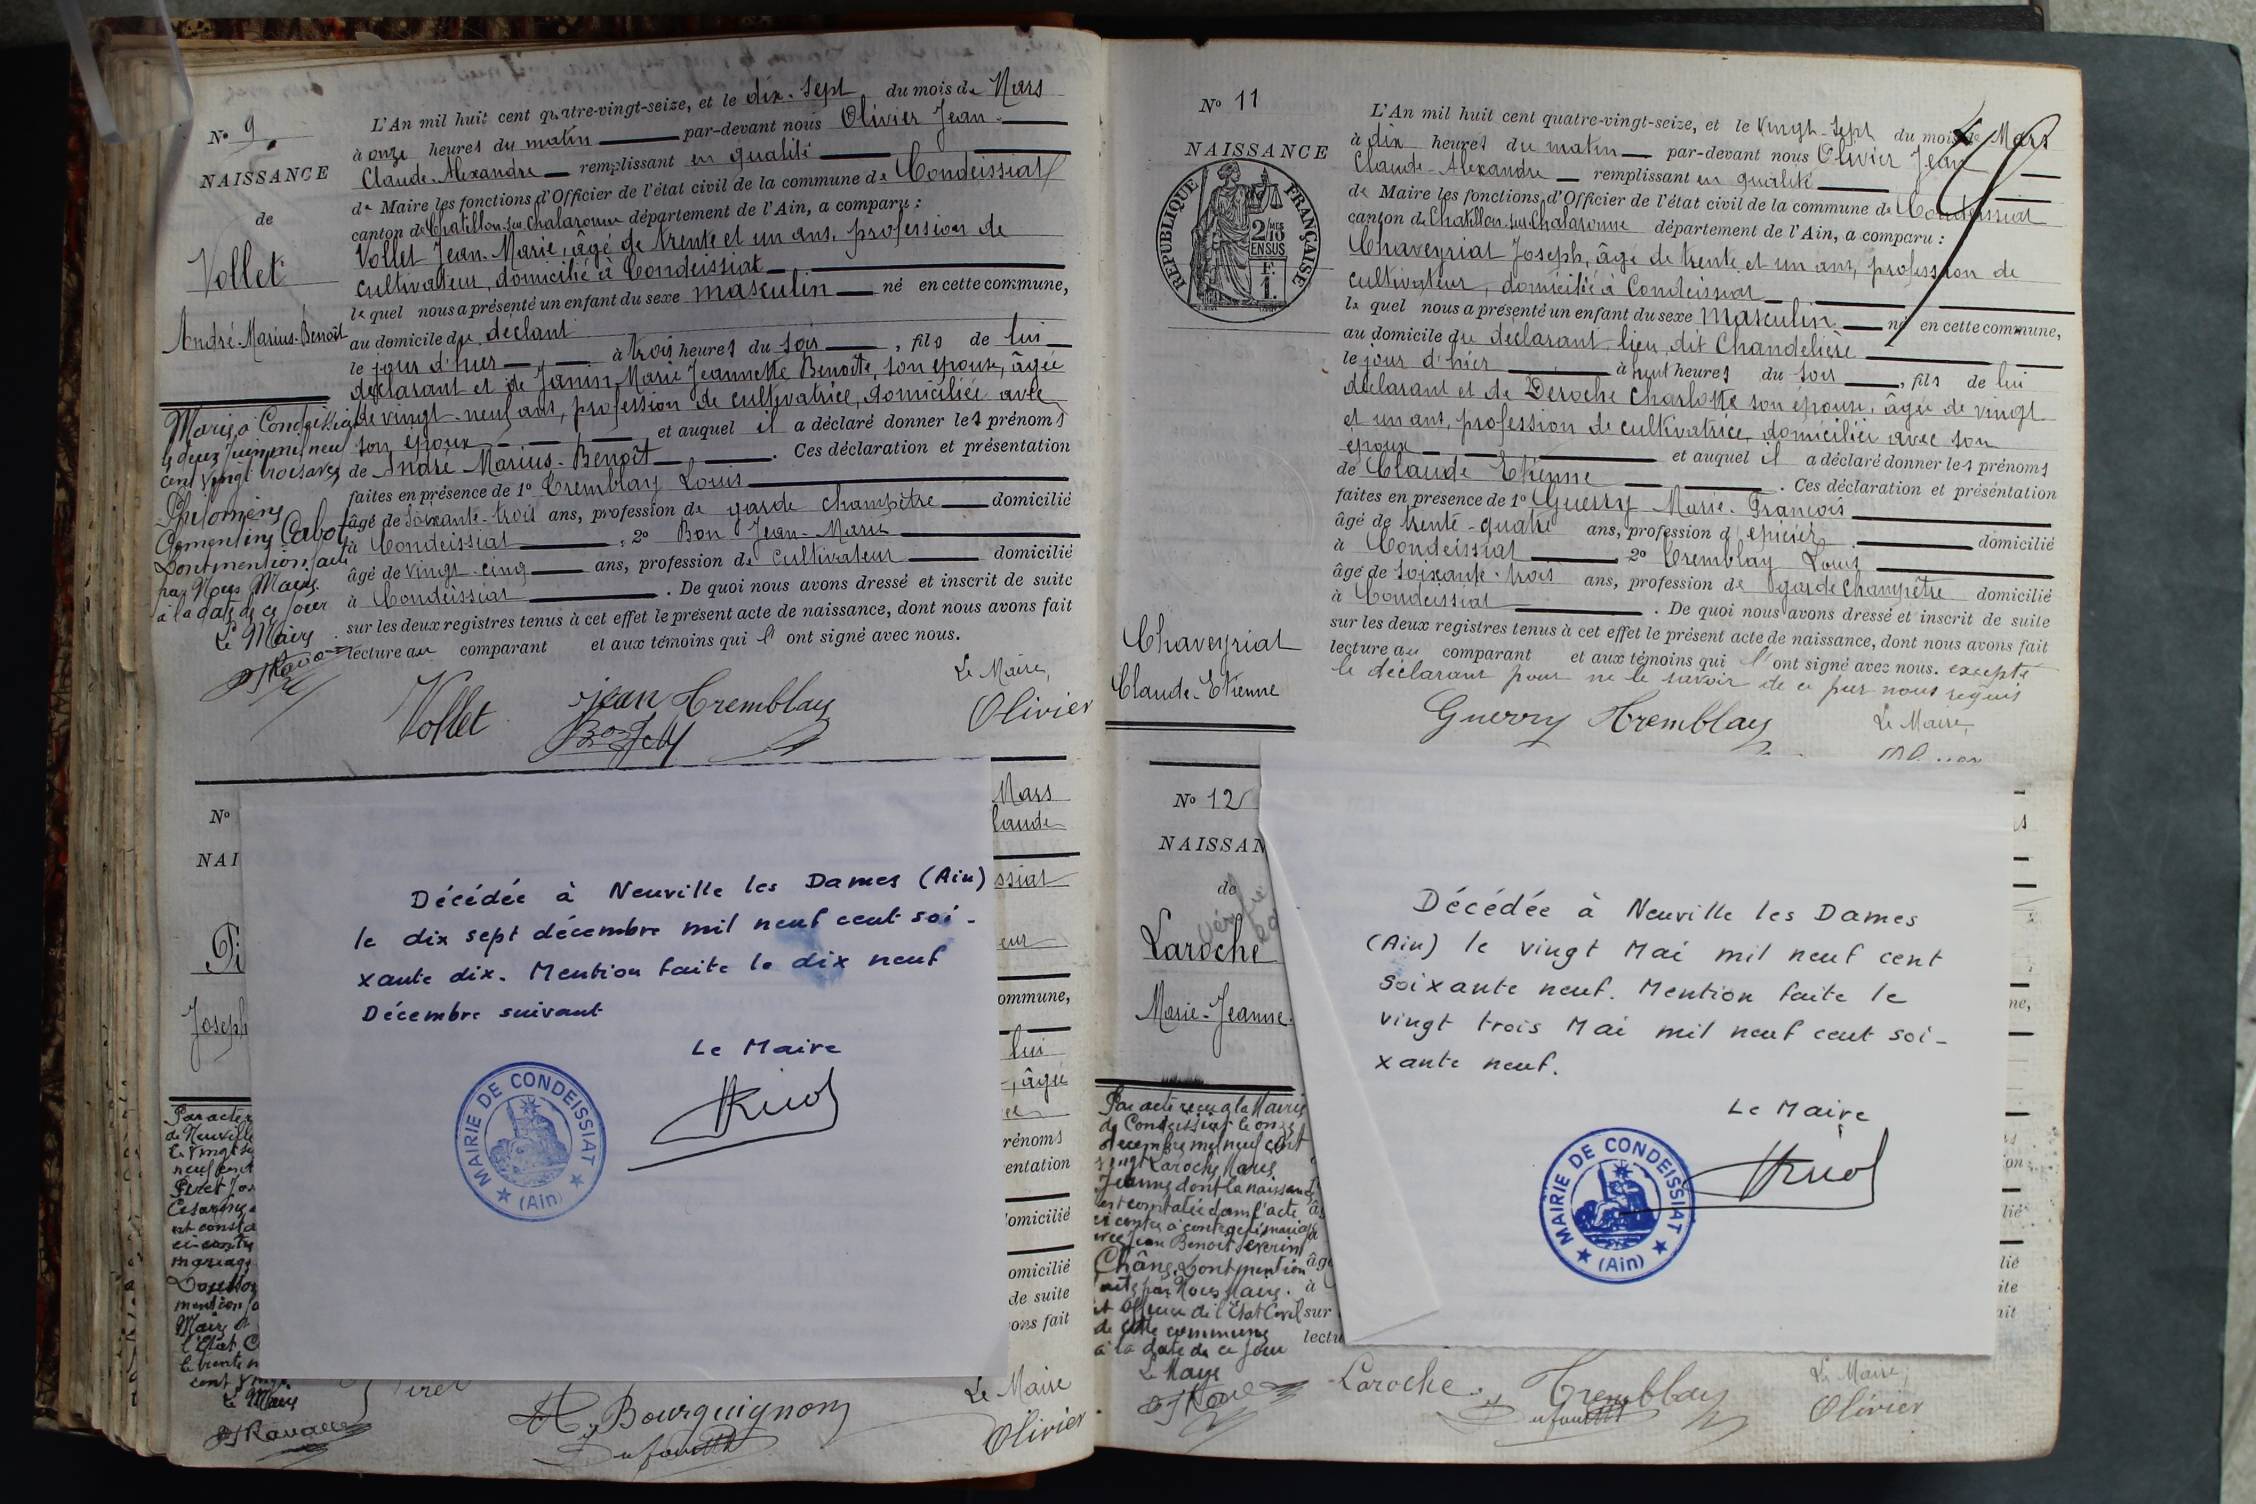 N° 9.
NAISSANCE
de
Vollet
André-Marius-Benoît
L'An mil huit cent quatre-vingt-seize, et le dix-sept du mois de Mars
à onze heures du matin par-devant nous Olivier Jean
Claude-Alexandre remplissant en qualité
de Maire les fonctions d'Officier de l'état civil de la commune de Condeissiat
canton de Chatillon-sur-Chalaronne département de l'Ain, a comparu :
Vollet Jean-Marie, âgé de trente et un ans, profession de
cultivateur, domicilié à Condeissiat
lequel nous a présenté un enfant du sexe masculin né en cette commune,
au domicile du déclant
le jour d'hier à trois heures du soir, fils de lui
déclarant et de Janin Marie Jeannette Benoîte, son épouse, âgée
de vingt-neuf ans, profession de cultivatrice, domiciliée avec
son époux et auquel il a déclaré donner les prénoms
de André Marius-Benoît. Ces déclaration et présentation
faites en présence de 1° Tremblay Louis
âgé de soixante-trois ans, profession de garde champêtre domicilié
à Condeissiat, 2° Bon Jean-Marie
âgé de vingt-cinq ans, profession de cultivateur domicilié
à Condeissiat. De quoi nous avons dressé et inscrit de suite
sur les deux registres tenus à cet effet le présent acte de naissance, dont nous avons fait
lecture au comparant et aux témoins qui l' ont signé avec nous.
Marié à Condeissiat
cent vingt trois avec
Philomène
Clémentine Cabot
Dont mention faite
par Nous Maire
à la date de ce jour
Le Maire
Vollet Jean Tremblay
Le Maire,
Olivier
N°
NAI
Joseph
Mars
laude
ssiat
eur
ommune,
lui
, âgé
rénoms
entation
omicilié
omicilié
de suite
ons fait
Décédée à Neuville les Dames (Ain)
le dix sept décembre mil neuf cent soi-
xante dix. Mention faite le dix neuf
Décembre suivant
Le Maire
MAIRIE DE CONDEISSIAT
(Ain)
Par acte
de Neuville
le vingt
neuf cent
Piret Jos
Césarine
est consta
ci-contre
mariage
mention
Maire
l'Etat C
le trente
cent vingt
Le Maire
H. Bourguignon
Le Maire
Olivier
N° 11
NAISSANCE
REPUBLIQUE FRANÇAISE
2/10 MES
EN SUS
F.
1.
Chaveyriat
Claude-Etienne
L'An mil huit cent quatre-vingt-seize, et le vingt-sept du mois de Mars
à dix heures du matin par-devant nous Olivier Jean
Claude-Alexandre remplissant en qualité
de Maire les fonctions d'Officier de l'état civil de la commune de Condeissiat
canton de Chatillon-sur-Chalaronne département de l'Ain, a comparu :
Chaveyriat Joseph, âgé de trente et un ans, profession de
cultivateur, domicilié à Condeissiat
lequel nous a présenté un enfant du sexe masculin né en cette commune,
au domicile du déclarant lieu dit Chandelière
le jour d'hier à huit heures du soir, fils de lui
déclarant et de Deroche Charlotte son épouse, âgée de vingt
et un ans, profession de cultivatrice, domiciliée avec son
époux et auquel il a déclaré donner les prénoms
de Claude Etienne. Ces déclaration et présentation
faites en présence de 1° Guerry Marie-François
âgé de trente-quatre ans, profession d'épicier domicilié
à Condeissiat 2° Tremblay Louis
âgé de soixante-trois ans, profession de garde champêtre domicilié
à Condeissiat. De quoi nous avons dressé et inscrit de suite
sur les deux registres tenus à cet effet le présent acte de naissance, dont nous avons fait
lecture au comparant et aux témoins qui l'ont signé avec nous. excepté
le déclarant pour ne le savoir de ce par nous requis
Guerry Tremblay
Le Maire,
N° 12
NAISSAN
de
Laroche
Marie-Jeanne.
Décédée à Neuville les Dames
(Ain) le vingt Mai mil neuf cent
soixante neuf. Mention faite le
vingt trois Mai mil neuf cent soi-
xante neuf.
Le Maire
MAIRIE DE CONDEISSIAT
(Ain)
Par acte reçu à la Mairie
de Condeissiat le onze
décembre mil neuf cent
vingt Laroche Marie
Jeanne dont la naissance
est constatée dans l'acte
ci contre a contracté mariage
avec Jean Benoit Severin
Chanel. Dont mention
faite par Nous Maire
et Officier de l'Etat Civil
de cette commune
à la date de ce jour
Le Maire
âgé
à
sur
lectu
Laroche Tremblay
Le Maire,
Olivier